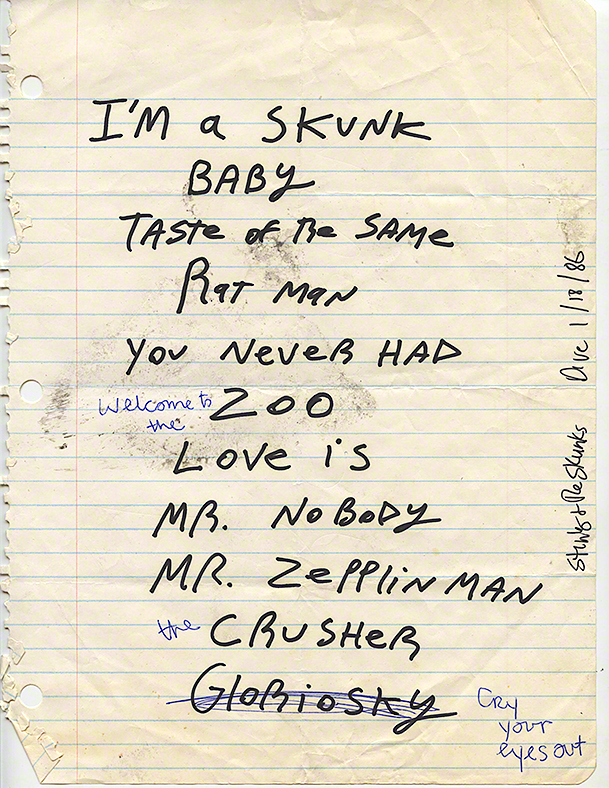 I'M a SKUNK
BABY
TASTE of The SAME
RAT MAN
YOU NEVER HAD
Welcome to the ZOO
LOVE iS
MR. NOBODY
MR. ZEPPLIN MAN
the CRUSHER
GLORIOSKY
Cry your eyes out
Stinky & The Skunks
Dive 1/18/86